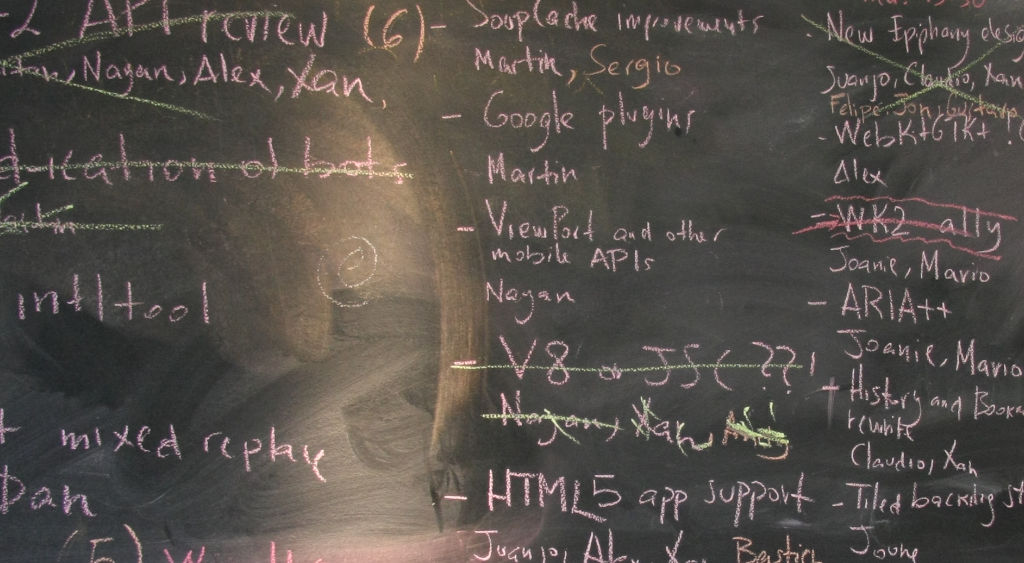 -2 API review (6)
Nayan, Alex, Xan,
intltool
mixed replay
Dan
(5)
- SoupCache improvements
Martin, Sergio
- Google plugins
Martin
- ViewPort and other
mobile APIs
Nayan
- V8 or JSC ??!
Nayan, Xan,
- HTML5 app support
Juanjo, Alex, Xan
- New Epiphany desig
Juanjo, Claudio, Xan
Felipe, Jon, Gustavo
- WebKitGTK+
Alex
- WK2 a11y
Joanie, Mario
- ARIA++
Joanie, Mario
+ History and Booka
rewrite
Claudio, Xan
- Tiled backing st
Joone